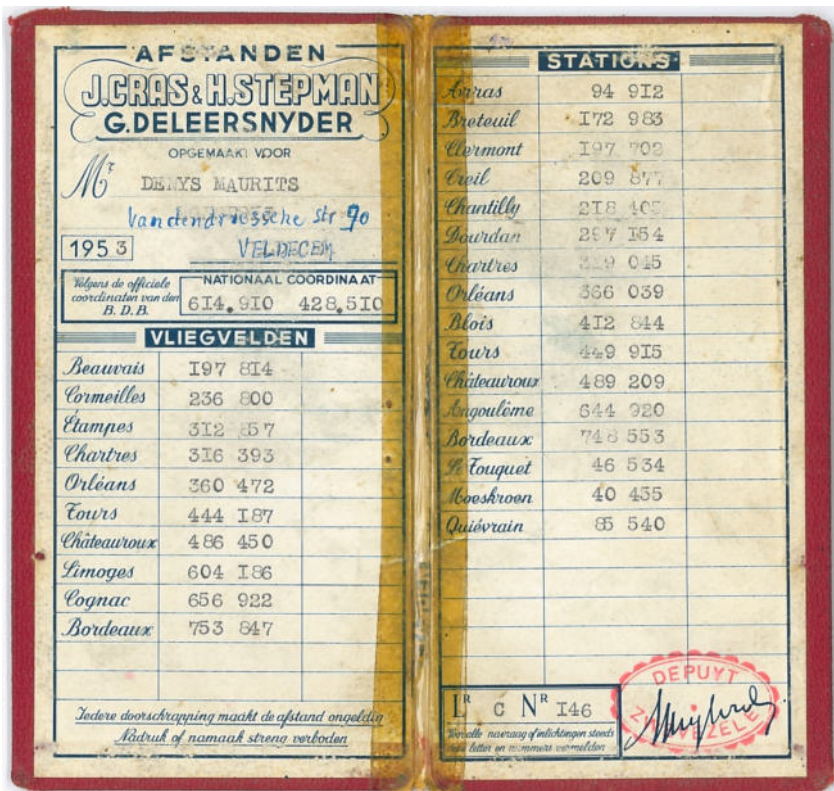 AFSTANDEN
J.CRAS & H.STEPMAN
G.DELEERSNYDER
OPGEMAAKT VOOR
Mr DENYS MAURITS
Vandendriessche str 70
1953 VELDEGEM
Volgens de officiele
coordinaten van den
B. D. B.
NATIONAAL COORDINAAT
614.910 428.510
VLIEGVELDEN
Beauvais 197 814
Cormeilles 236 800
Étampes 312 857
Chartres 316 393
Orléans 360 472
Tours 444 187
Châteauroux 486 450
Limoges 604 186
Cognac 656 922
Bordeaux 753 847
Iedere doorschrapping maakt de afstand ongeldig
Nadruk of namaak streng verboden
STATIONS
Arras 94 912
Breteuil 172 983
Clermont 197 702
Creil 209 877
Chantilly 218 405
Dourdan 297 154
Chartres 319 045
Orléans 366 039
Blois 412 844
Tours 449 915
Châteauroux 489 209
Angoulême 644 920
Bordeaux 748 553
Le Touquet 46 534
Moeskroen 40 435
Quiévrain 85 540
LR C NR 146
Voor alle navraag of inlichtingen steeds
deze letter en nummers vermelden
DEPUYT
ZWEVEZELE